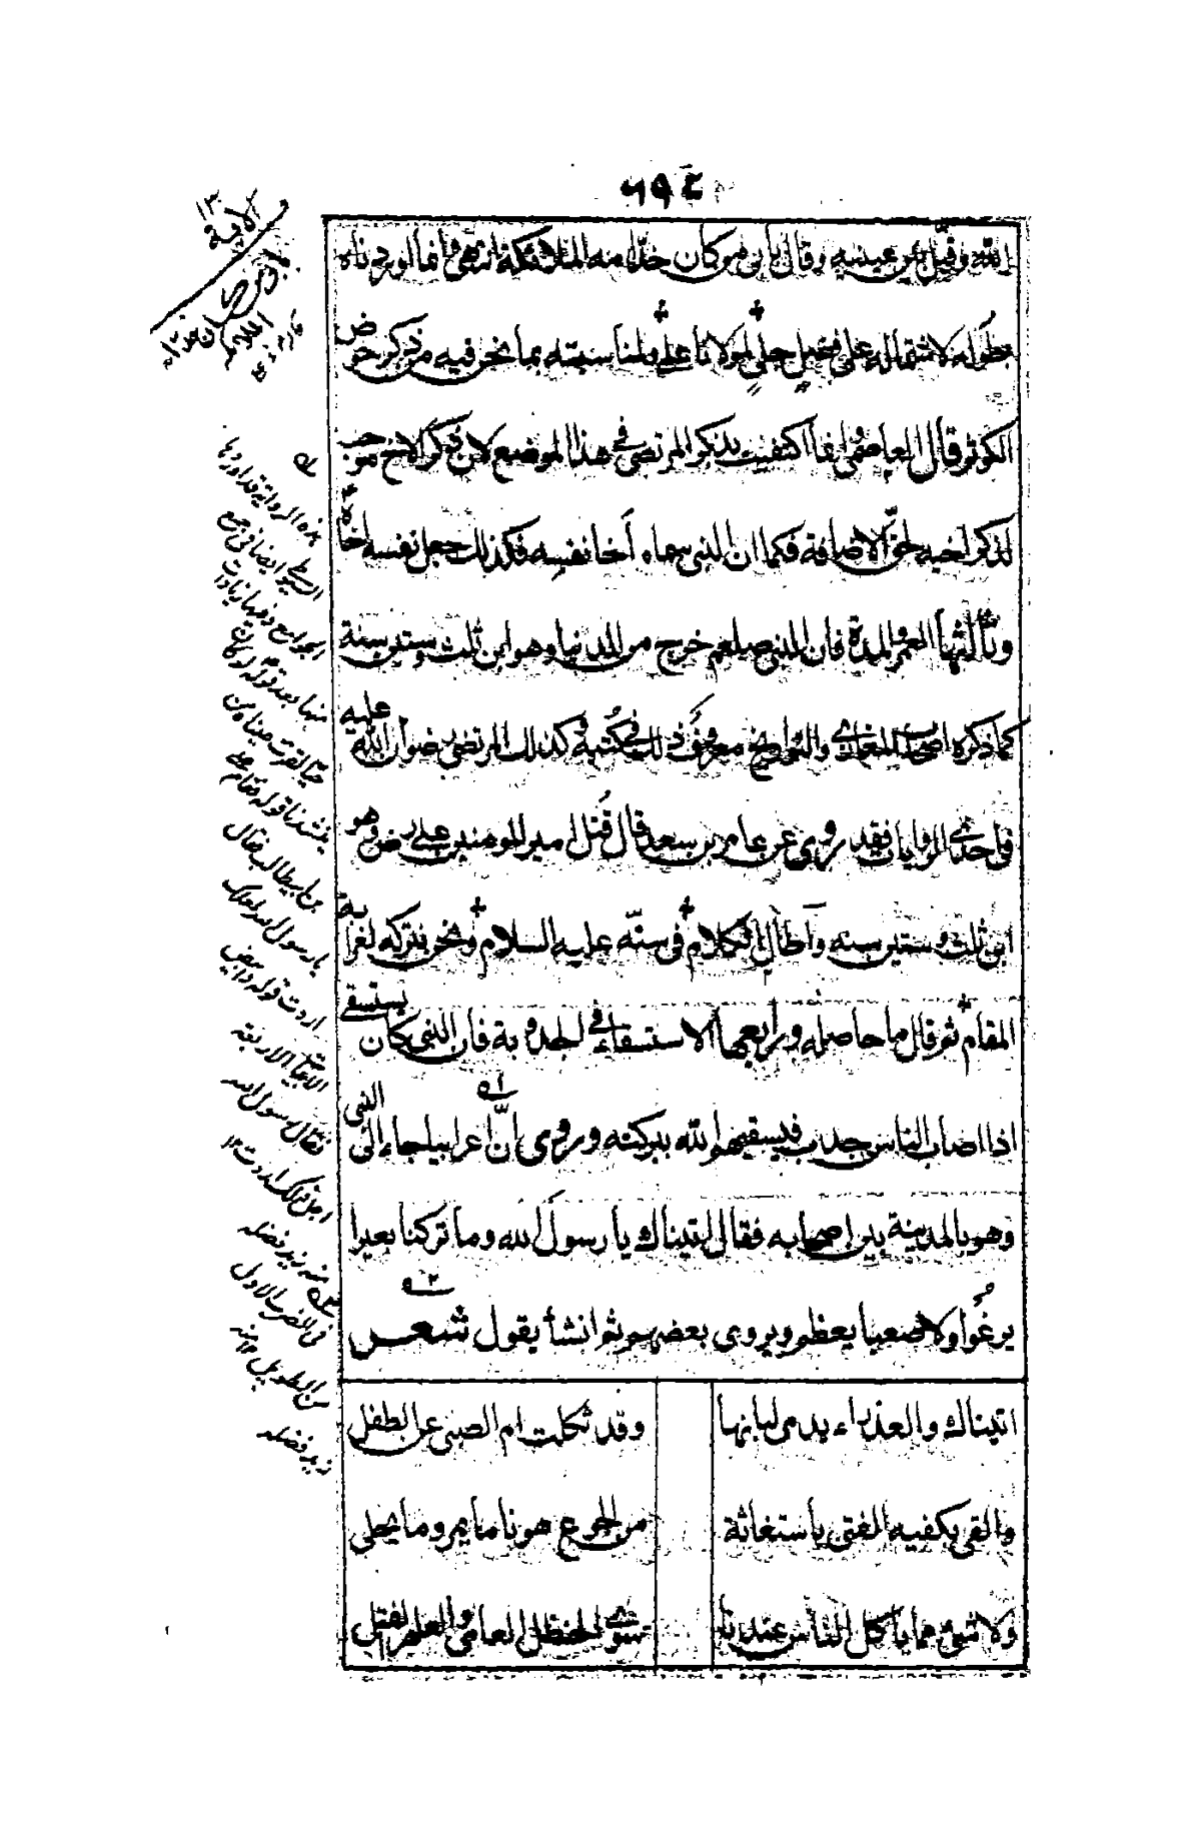 ٦٩٤
الله وقبّل بين عينيه وقال بابى من كان حدّامنه الملائكة انتهى وانما اوردناه
بطوله لاشتماله على فضل جليّ لمولانا علىّ ولمناسبته بما نحن فيه من ذكر حوض
الكوثر قال العاصمى وانما اكتفيت بذكر المرتضى فى هذا الموضع لان ذكر الاخ موجب
لذكر اخيه لحقّ الاضافة فكما ان النبى سماه أخا نفسه فكذلك جعل نفسه اخًا له
وثالثها العمر والمدة فان النبى صلعم خرج من الدنيا وهو ابن ثلث وستين سنة
كما ذكره اصحاب المغازى والتواريخ معروف ذلك فى كُتبه وكذلك المرتضى رضوان الله عليه
فى احدى الروايات فقد روى عن عامر بن سعد قال قُتل امير المومنين على رض وهو
ابن ثلث وستين سنه وأطال الكلام فى سنّه عليه السلام ونحن نتركه لغرابه
المقام ثم قال ما حاصله ورابعها الاستسقاء فى الجدوبة فان النبى كان يستسقى
اذا اصاب الناس جدب فيسقيهم الله ببركته وروى انّ اعرابيا جاء الى النبى
وهو بالمدينة بين اصحابه فقال اتيناك يا رسول الله وما تركنا بعيرا
يرغُوا ولا صبيا يغط ويروى بعضهم ثم انشأ يقول شعـــر
اتيناك والعذراء يدمى لبانها وقد شكلت ام الصبى عن الطفل
والقى بكفيه الفتى باستغاثة من الجوع هونا ما يمر وما يحلى
ولا شئ مما يأكل الناس عندنا سوى الحنظل العامى والعلهز الفتل
هذه الرواية قد اوردها
السيوطى ايضا فى جمع
الجوامع وفيها زيادات
منها بعد قوله لو كان
حيا لقرت عيناه من
ينشدنا قوله فقام على
بن ابيطالب فقال
يا رسول الله لعلك
اردت قوله وابيض
الابيات الاربعة
فقال رسول الله
اجل ذلك اردت ١٢
منه زيد فضله
فى الضرب الاول
من الطويل ١٢ منه
زيد فضله